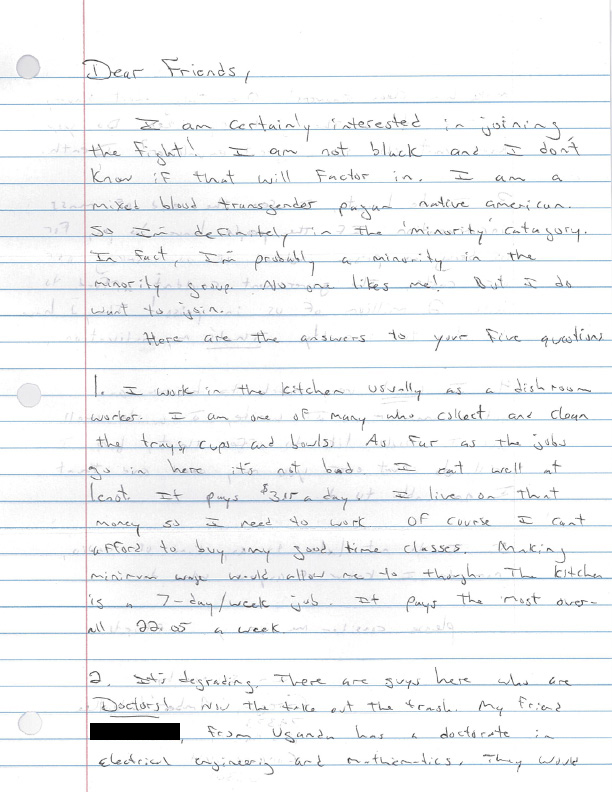 Dear Friends,
I am certainly interested in joining
the fight! I am not black and I don't
know if that will factor in. I am a
mixed blood transgender pagan native american.
So I'm definitely in the 'minority' catagory.
In fact, I'm probably a minority in the
minority group. No one likes me! But I do
want to join.
Here are the answers to your five questions
1. I work in the kitchen usually as a dishroom
worker. I am one of many who collect and clean
the trays, cups and bowls. As far as the jobs
go in here it's not bad. I eat well at
least. It pays $3.15 a day. I live on that
money so I need to work. Of course I can't
afford to buy my good time classes. Making
minimum wage would allow me to though. The kitchen
is a 7-day/week job. It pays the most over-
all 22.05 a week.
2. It's degrading. There are guys here who are
Doctors! the take out the trash. My friend
, from Uganda has a doctorate in
electrical engineering and mathematics. They would